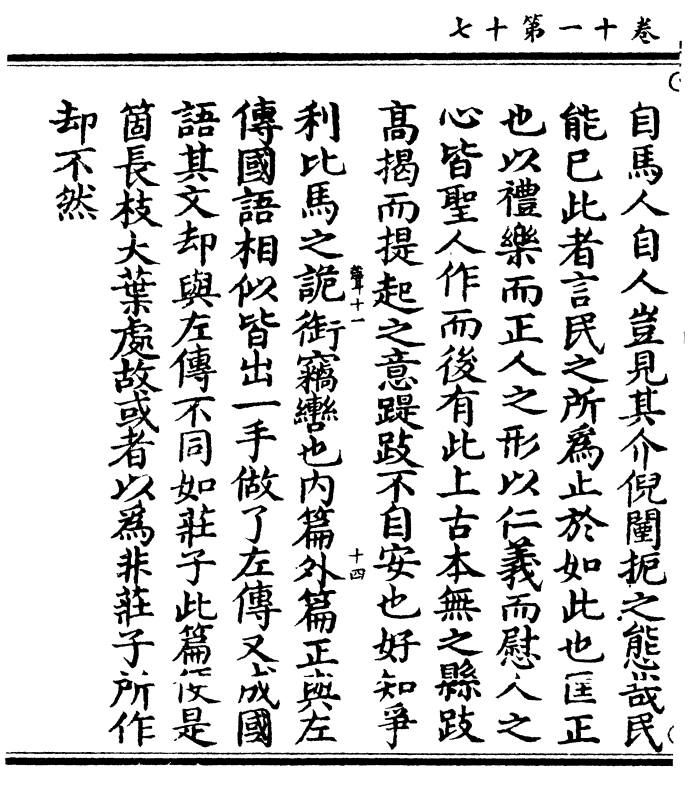 卷十一第十七
自馬人自人豈見其介倪闉扼之態哉民
能已此者言民之所爲止於如此也匡正
也以禮樂而正人之形以仁義而慰人之
心皆聖人作而後有此上古本無之縣跂
高揭而提起之意踶跂不自安也好知爭
利比馬之詭銜竊轡也内篇外篇正與左
十一
十四
傳國語相似皆出一手做了左傳又成國
語其文却與左傳不同如莊子此篇便是
箇長枝大葉處故或者以爲非莊子所作
却不然